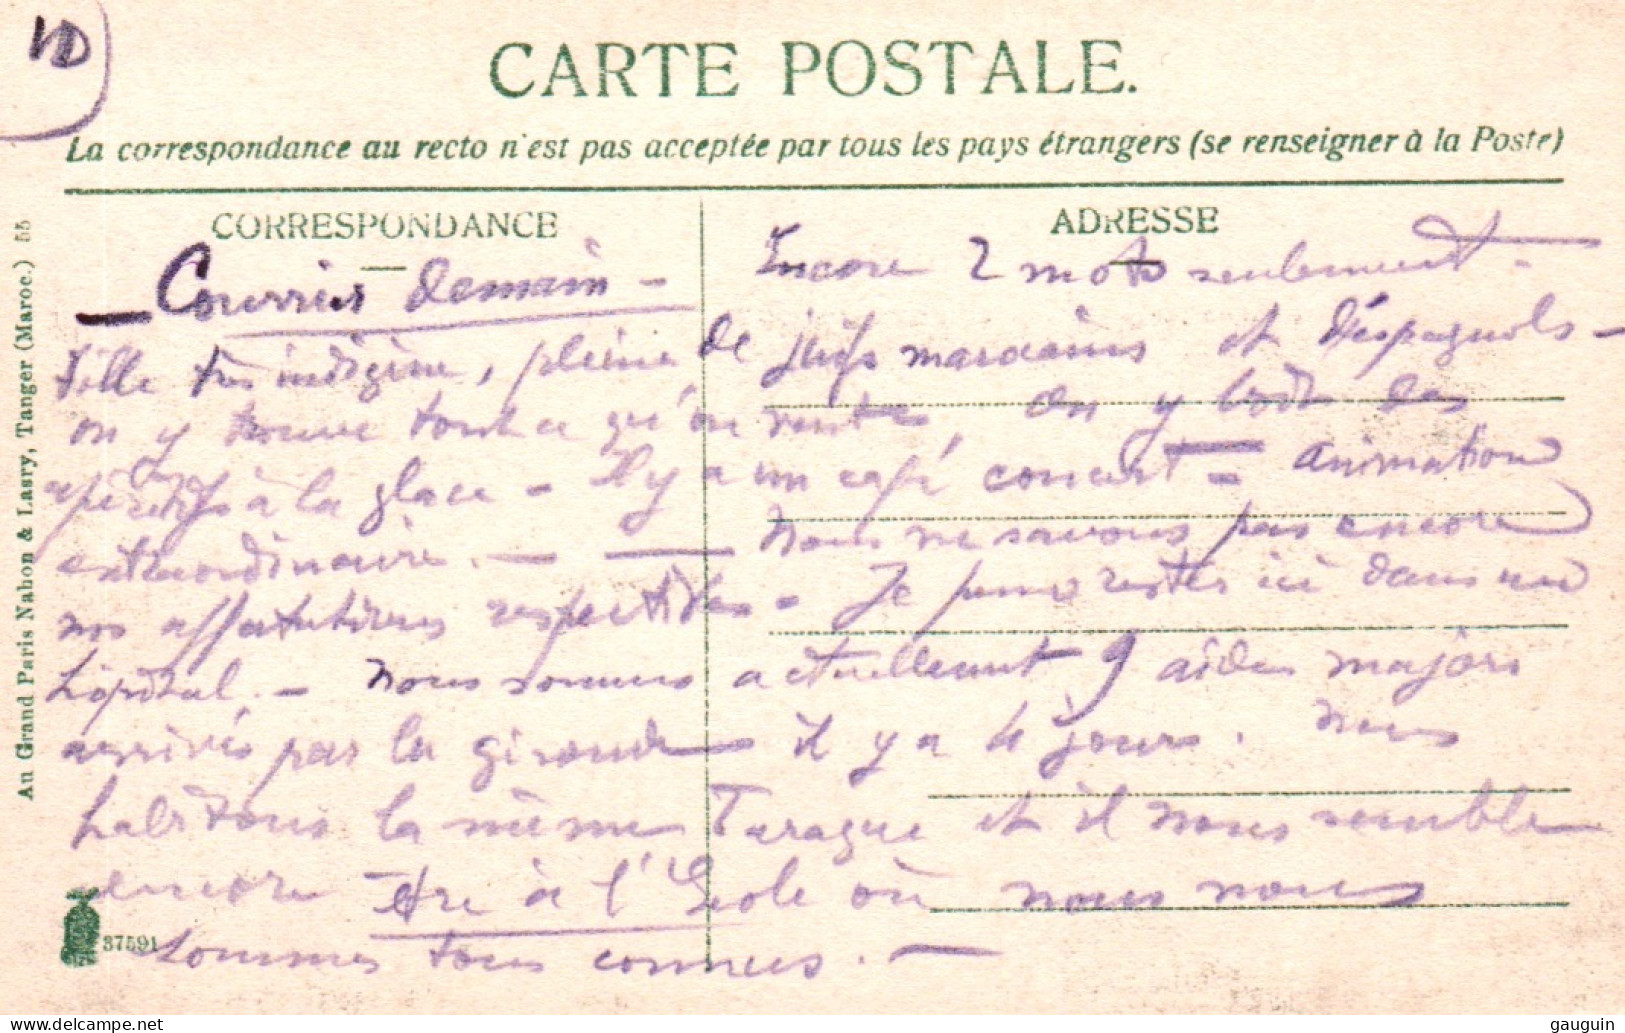 VD
CARTE POSTALE.
La correspondance au recto n'est pas acceptée par tous les pays étrangers (se renseigner à la Poste)
CORRESPONDANCE
ADRESSE
Encore 2 mots seulement -
— Courrier demain -
Ville très indigène, pleine de juifs marocains et d'espagnols -
on y trouve tout ce qu'on veut, on y boit des
apéritifs à la glace - Il y a un café concert - animation
extraordinaire. — — nous ne savons pas encore
nos affectations respectives - Je peux rester ici dans un
hôpital. - nous sommes actuellement 9 aides majors
arrivés par la gironde il y a 4 jours. nous
habitons la même baraque et il nous semble
encore être à l'Ecole où nous nous
sommes tous connus. —
37591
Au Grand Paris Nahon & Lasry, Tanger (Maroc.) 55
gauguin